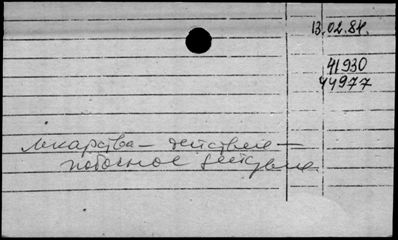 13.02.84.
41930
44977
лекарства – действие –
побочное действие